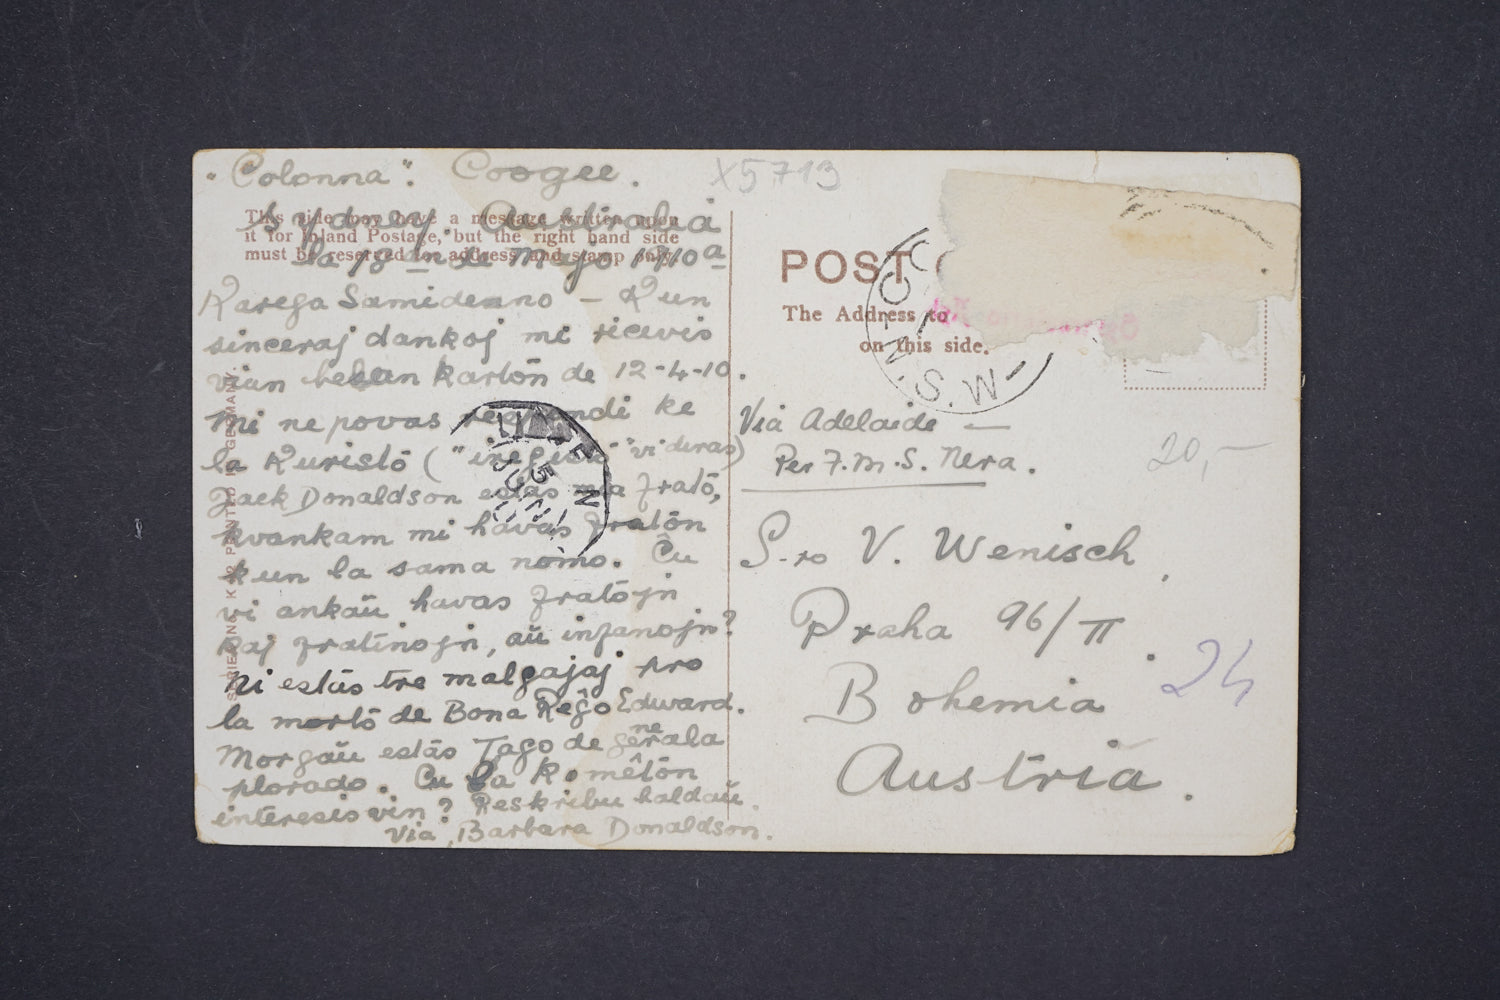 "Colonna". Coogee.
X5713
This side may have a message written upon
it for Inland Postage, but the right hand side
must be reserved for address and stamp only.
Sydney Australia
la 18an de Majo 1910a
Karega Samideano – Kun
sinceraj dankoj mi ricevis
vian belan kartōn de 12-4-10.
Mi ne povas respondi ke
la Kuristō ( vi diras)
Jack Donaldson estas mia fratō,
kvankam mi havas fratōn
kun la sama nomo. Ĉu
vi ankaŭ havas fratojn
kaj fratinojn, aŭ infanojn?
Ni estās tre malgajaj pro
la mortō de Bona Reĝo Edward.
Morgaŭ estās Tago de generala
plorado. Ĉu la Kometōn
interesis vin? Reskribu baldaŭ.
Via, Barbara Donaldson.
PRINTED IN GERMANY.
POST
The Address to
on this side.
N.S.W
Via Adelaide —
Per F.M.S. Nera.
20,-
S-ro V. Wenisch,
Praha 96/II.
Bohemia
24
Austria.